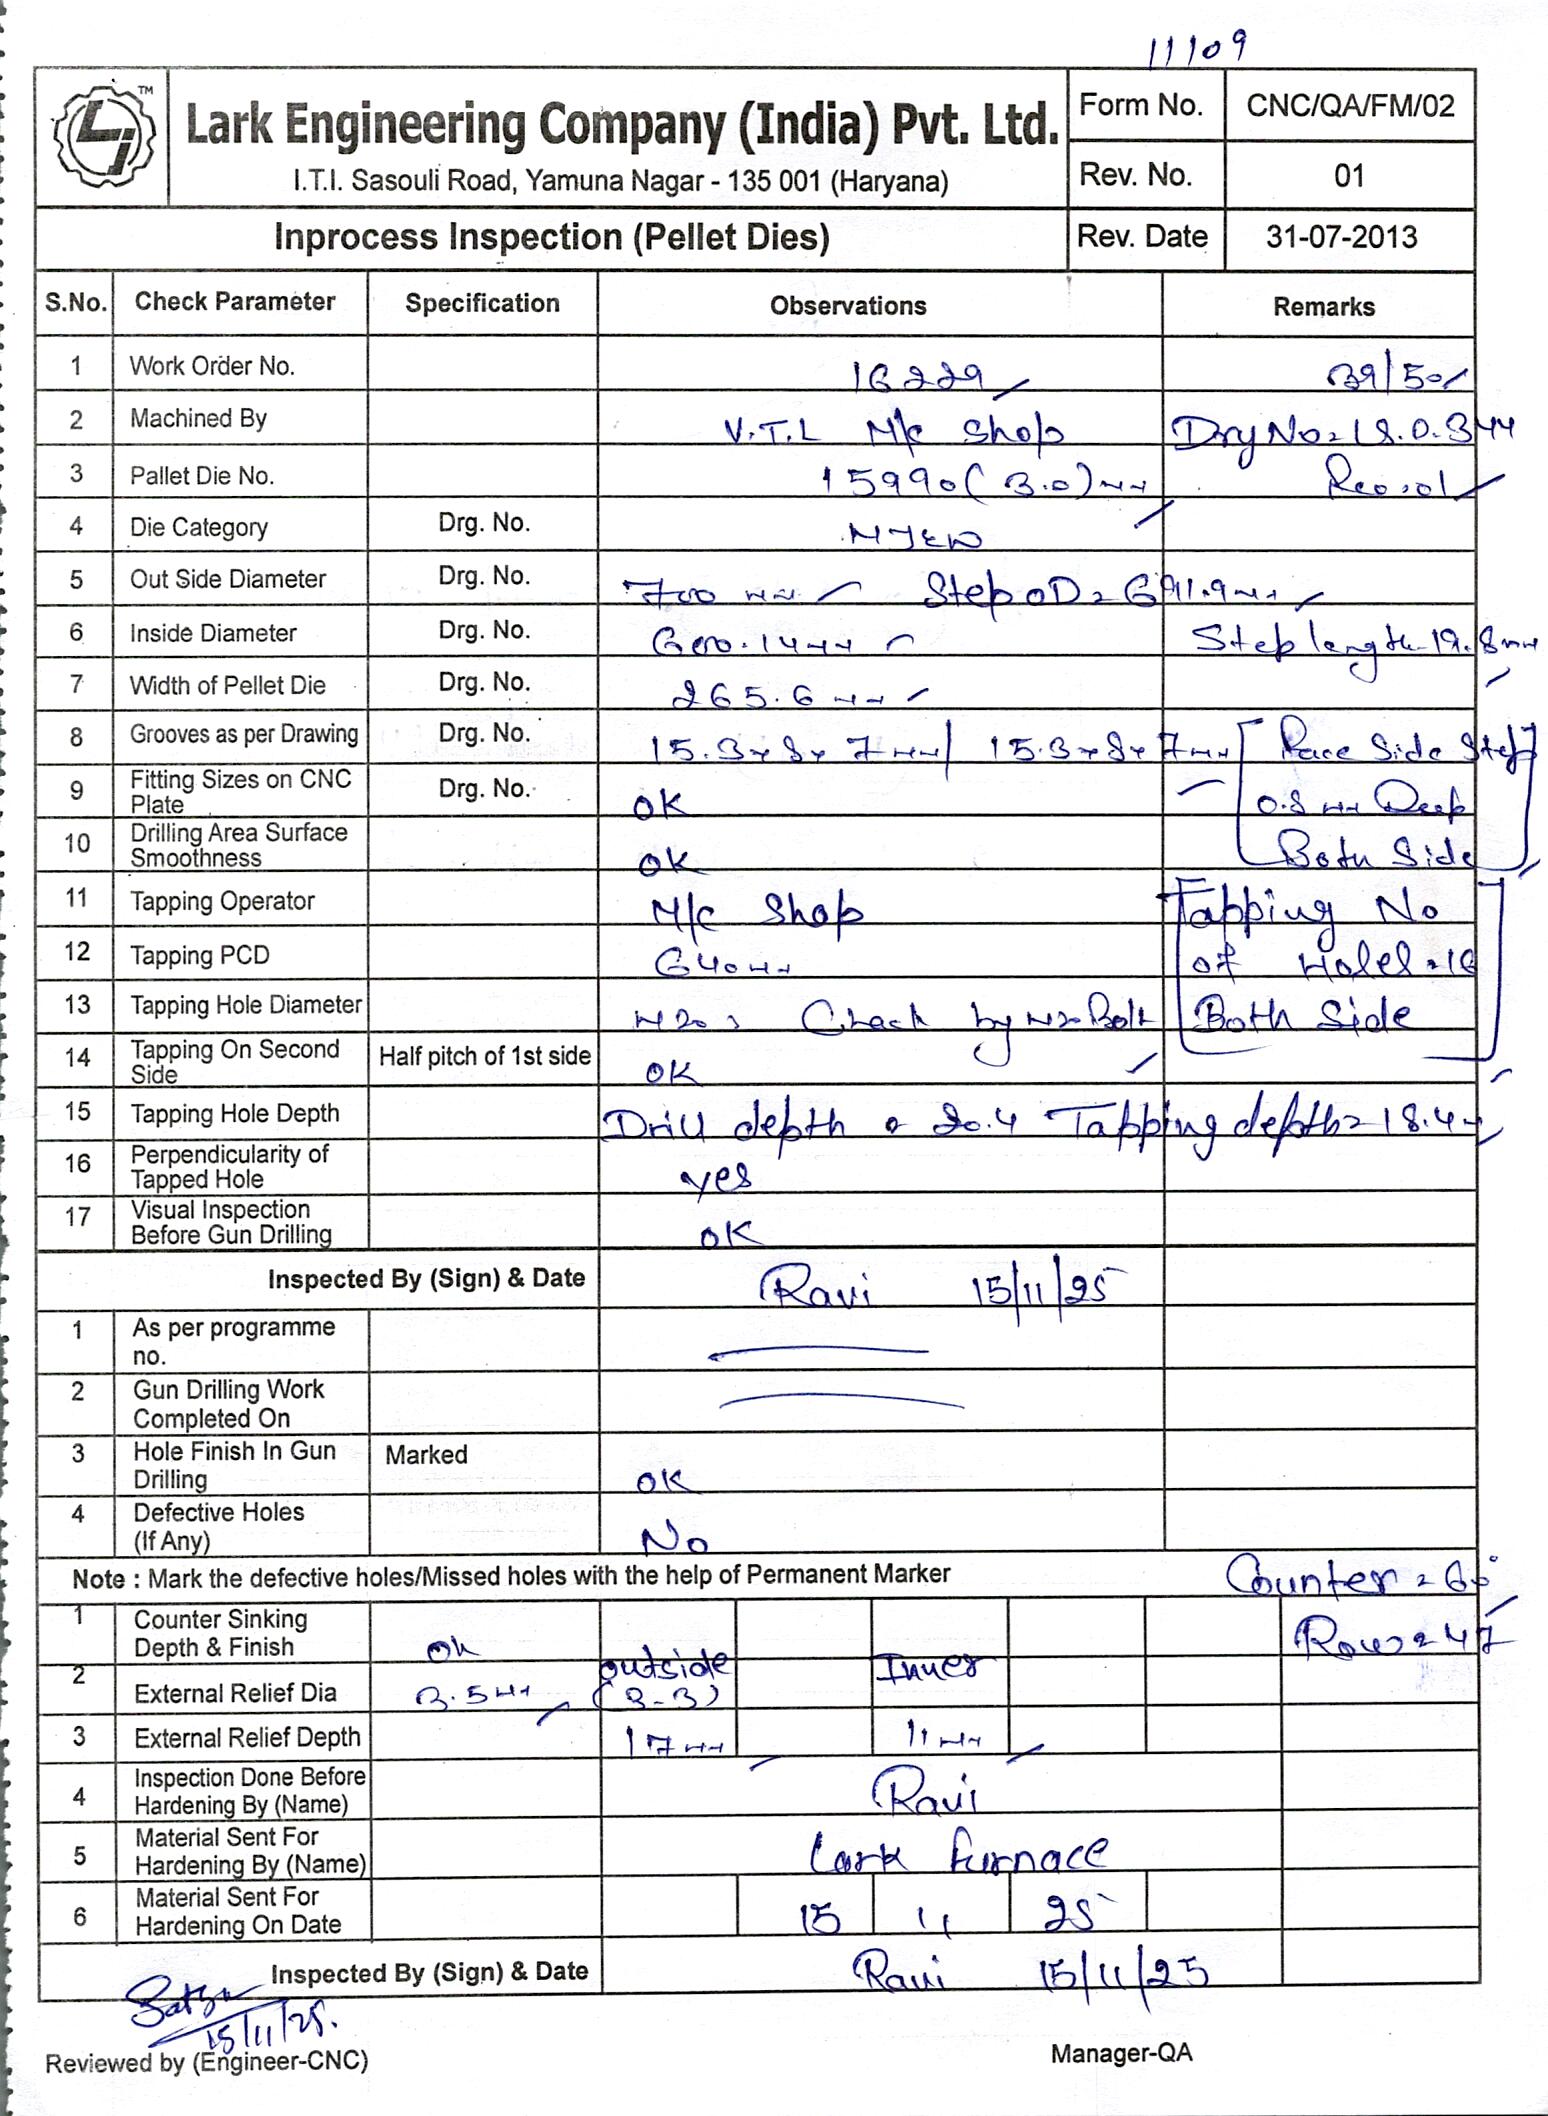 11109
TM
Lark Engineering Company (India) Pvt. Ltd.
I.T.I. Sasouli Road, Yamuna Nagar - 135 001 (Haryana)
Form No. CNC/QA/FM/02
Rev. No. 01
Inprocess Inspection (Pellet Dies) Rev. Date 31-07-2013
S.No. Check Parameter Specification Observations Remarks
1 Work Order No. 16229 39/50
2 Machined By V.T.L M/c Shop Drg No = LS.D.344
3 Pallet Die No. 15990 (3.0) mm Rev.01
4 Die Category Drg. No. NEW
5 Out Side Diameter Drg. No. 700 mm Step OD = 691.9 mm
6 Inside Diameter Drg. No. 600.14 mm Step length 19.8 mm
7 Width of Pellet Die Drg. No. 265.6 mm
8 Grooves as per Drawing Drg. No. 15.3 x 8 x 7 mm / 15.3 x 8 x 7 mm Race Side Step
9 Fitting Sizes on CNC Plate Drg. No. OK 0.8 mm Deep
10 Drilling Area Surface Smoothness OK Both Side
11 Tapping Operator M/c Shop Tapping No
12 Tapping PCD 640 mm of Holes = 16
13 Tapping Hole Diameter M20, Check by M20 Bolt Both Side
14 Tapping On Second Side Half pitch of 1st side OK
15 Tapping Hole Depth Drill depth = 20.4 Tapping depth = 18.4
16 Perpendicularity of Tapped Hole yes
17 Visual Inspection Before Gun Drilling OK
Inspected By (Sign) & Date Ravi 15/11/25
1 As per programme no.
2 Gun Drilling Work Completed On
3 Hole Finish In Gun Drilling Marked OK
4 Defective Holes (If Any) No
Note : Mark the defective holes/Missed holes with the help of Permanent Marker Counter = 60°
1 Counter Sinking Depth & Finish Ok Row = 47
outside Inner
2 External Relief Dia 3.5 mm (3-3)
3 External Relief Depth 17 mm 11 mm
4 Inspection Done Before Hardening By (Name) Ravi
5 Material Sent For Hardening By (Name) Lark Furnace
6 Material Sent For Hardening On Date 15 11 25
Inspected By (Sign) & Date Ravi 15/11/25
15/11/25.
Reviewed by (Engineer-CNC) Manager-QA